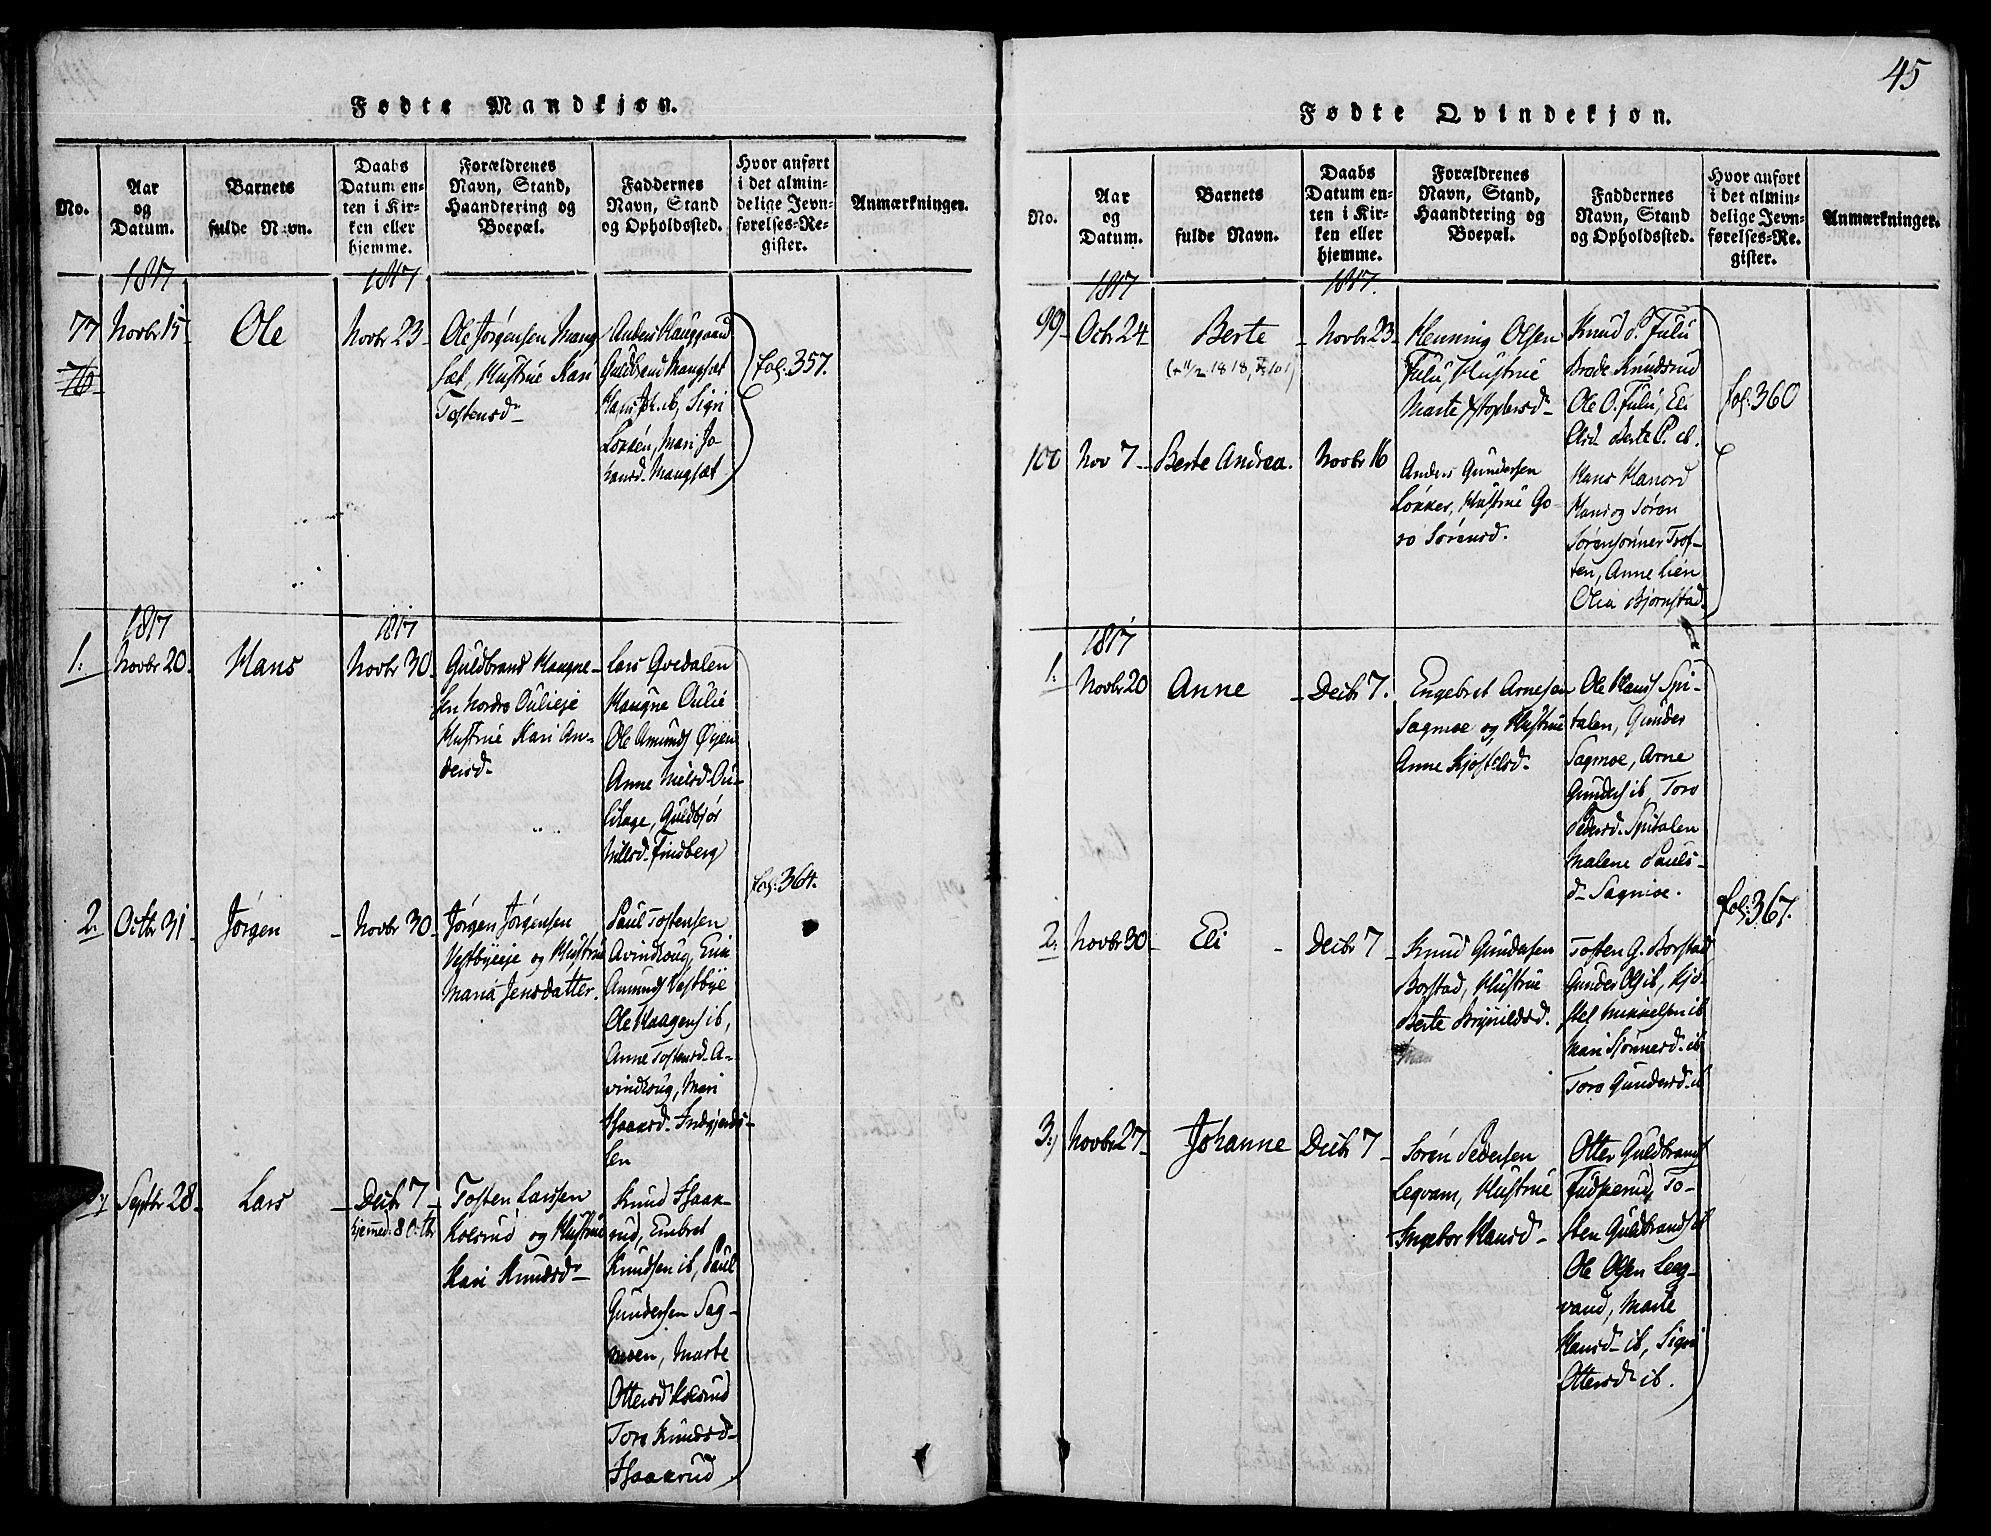 Fødte Mandkjøn.
No.
Aar
og
Datum.
Barnets
fulde Navn.
Daabs
Datum en-
ten i Kir-
ken eller
hjemme.
Forældrenes
Navn, Stand,
Haandtering og
Boepæl.
Faddernes
Navn, Stand
og Opholdssted.
Hvor anført
i det almin-
delige Jevn-
førelses-Re-
gister.
Anmærkninger.
1817
1817
77
76
Novbr 15
Ole
Novbr 23
Ole Jørgensen Mang
sæt, Hustrue Kari
Tostensd
Anders Haugaard
Guldbrand Mangsæt
Hans ib, Sigri
Løkken, Mari Jo
hansd. Mangsæt
fol: 357.
1817
1817
1.
Novbr 20
Hans
Novbr 30
Guldbrand Haugne-
sen Nordre Oulieje
Hustrue Kari An-
dersd
Lars Qvedalen
Haugne Oulie
Ole Amunds Øyen
Anne Nielsd. Ou-
lihage, Guldbjør
Nillsd. Findberg
fol: 364.
2.
Octbr 31
Jørgen
Novbr 30
Jørgen Jørgensen
Vestbyeje og Hustrue
Maria Jensdatter.
Paul Tostensen
Qvindkoug, Erik
Amunds Vestbye
Ole Haagens ib,
Anne Tostensd. Q-
vindkoug, Mari
Isaaksd. Indgjerds-
len
Septbr 28
Lars
Decbr 7
hjemmed: 8 Octbr
Tosten Larsen
Kolsrud og Hustrue
Kari Knudsd
Knud Isaak-
rud, Enebret
Knudsen ib, Paul
Gundersen Sag-
moen, Marte
Ottersd Kolsrud
Toro Knudsd
Isaakrud
45
Fødte Qvindekjøn.
No.
Aar
og
Datum.
Barnets
fulde Navn.
Daabs
Datum en-
ten i Kir-
ken eller
hjemme.
Forældrenes
Navn, Stand,
Haandtering og
Boepæl.
Faddernes
Navn, Stand
og Opholdssted.
Hvor anført
i det almin-
delige Jevn-
førelses-Re-
gister.
Anmærkninger.
1817
1817.
99
Octb: 24
Berte
(+ 11/2 1818, F 101)
Novbr 23
Henning Olsen
Fulu, Hustrue
Marte Xstophersd
Knud P. Fulu
Brede Knudsrud
Ole O. Fulu, Eli
Olsd. Berte P. ib.
fol: 360
100
Nov 7
Berte Andrea.
Novbr 16
Anders Gundersen
Løkker, Hustrue Go-
ro Sørensd.
Hans Hanord
Hans og Søren
Sørensønner Tros-
ten, Anne Lien
Olia Bjørnstad.
1817
1.
Novbr 20
Anne
Decbr 7.
Engebret Arnesen
Sagmoe og Hustrue
Anne Kjostelsd.
Ole Hans Spi-
talen, Gunder
Sagmoe, Arne
Gunders ib, Toro
Pedersd. Spitalen
Malene Pauls-
d. Sagmoe.
fol: 367.
2.
Novbr 30
Eli
Decbr 7
Knud Gundersen
Borstad, Hustrue
Berte Brynildsd.
Tosten G. Borstad
Gunder Ols ib, Kjø-
stel Mikkelsen ib
Mari Simensd. ib
Toro Gundersd. ib
3.
Novbr 27
Johanne
Decbr 7
Søren Pedersen
Leqvam, Hustrue
Ingebor Hansd
Otter Guldbrands
Fudsperud, To-
sten Guldbrands ib
Ole Olsen Leeg-
vand, Marte
Hansd ib, Sigri
Ottersd ib.